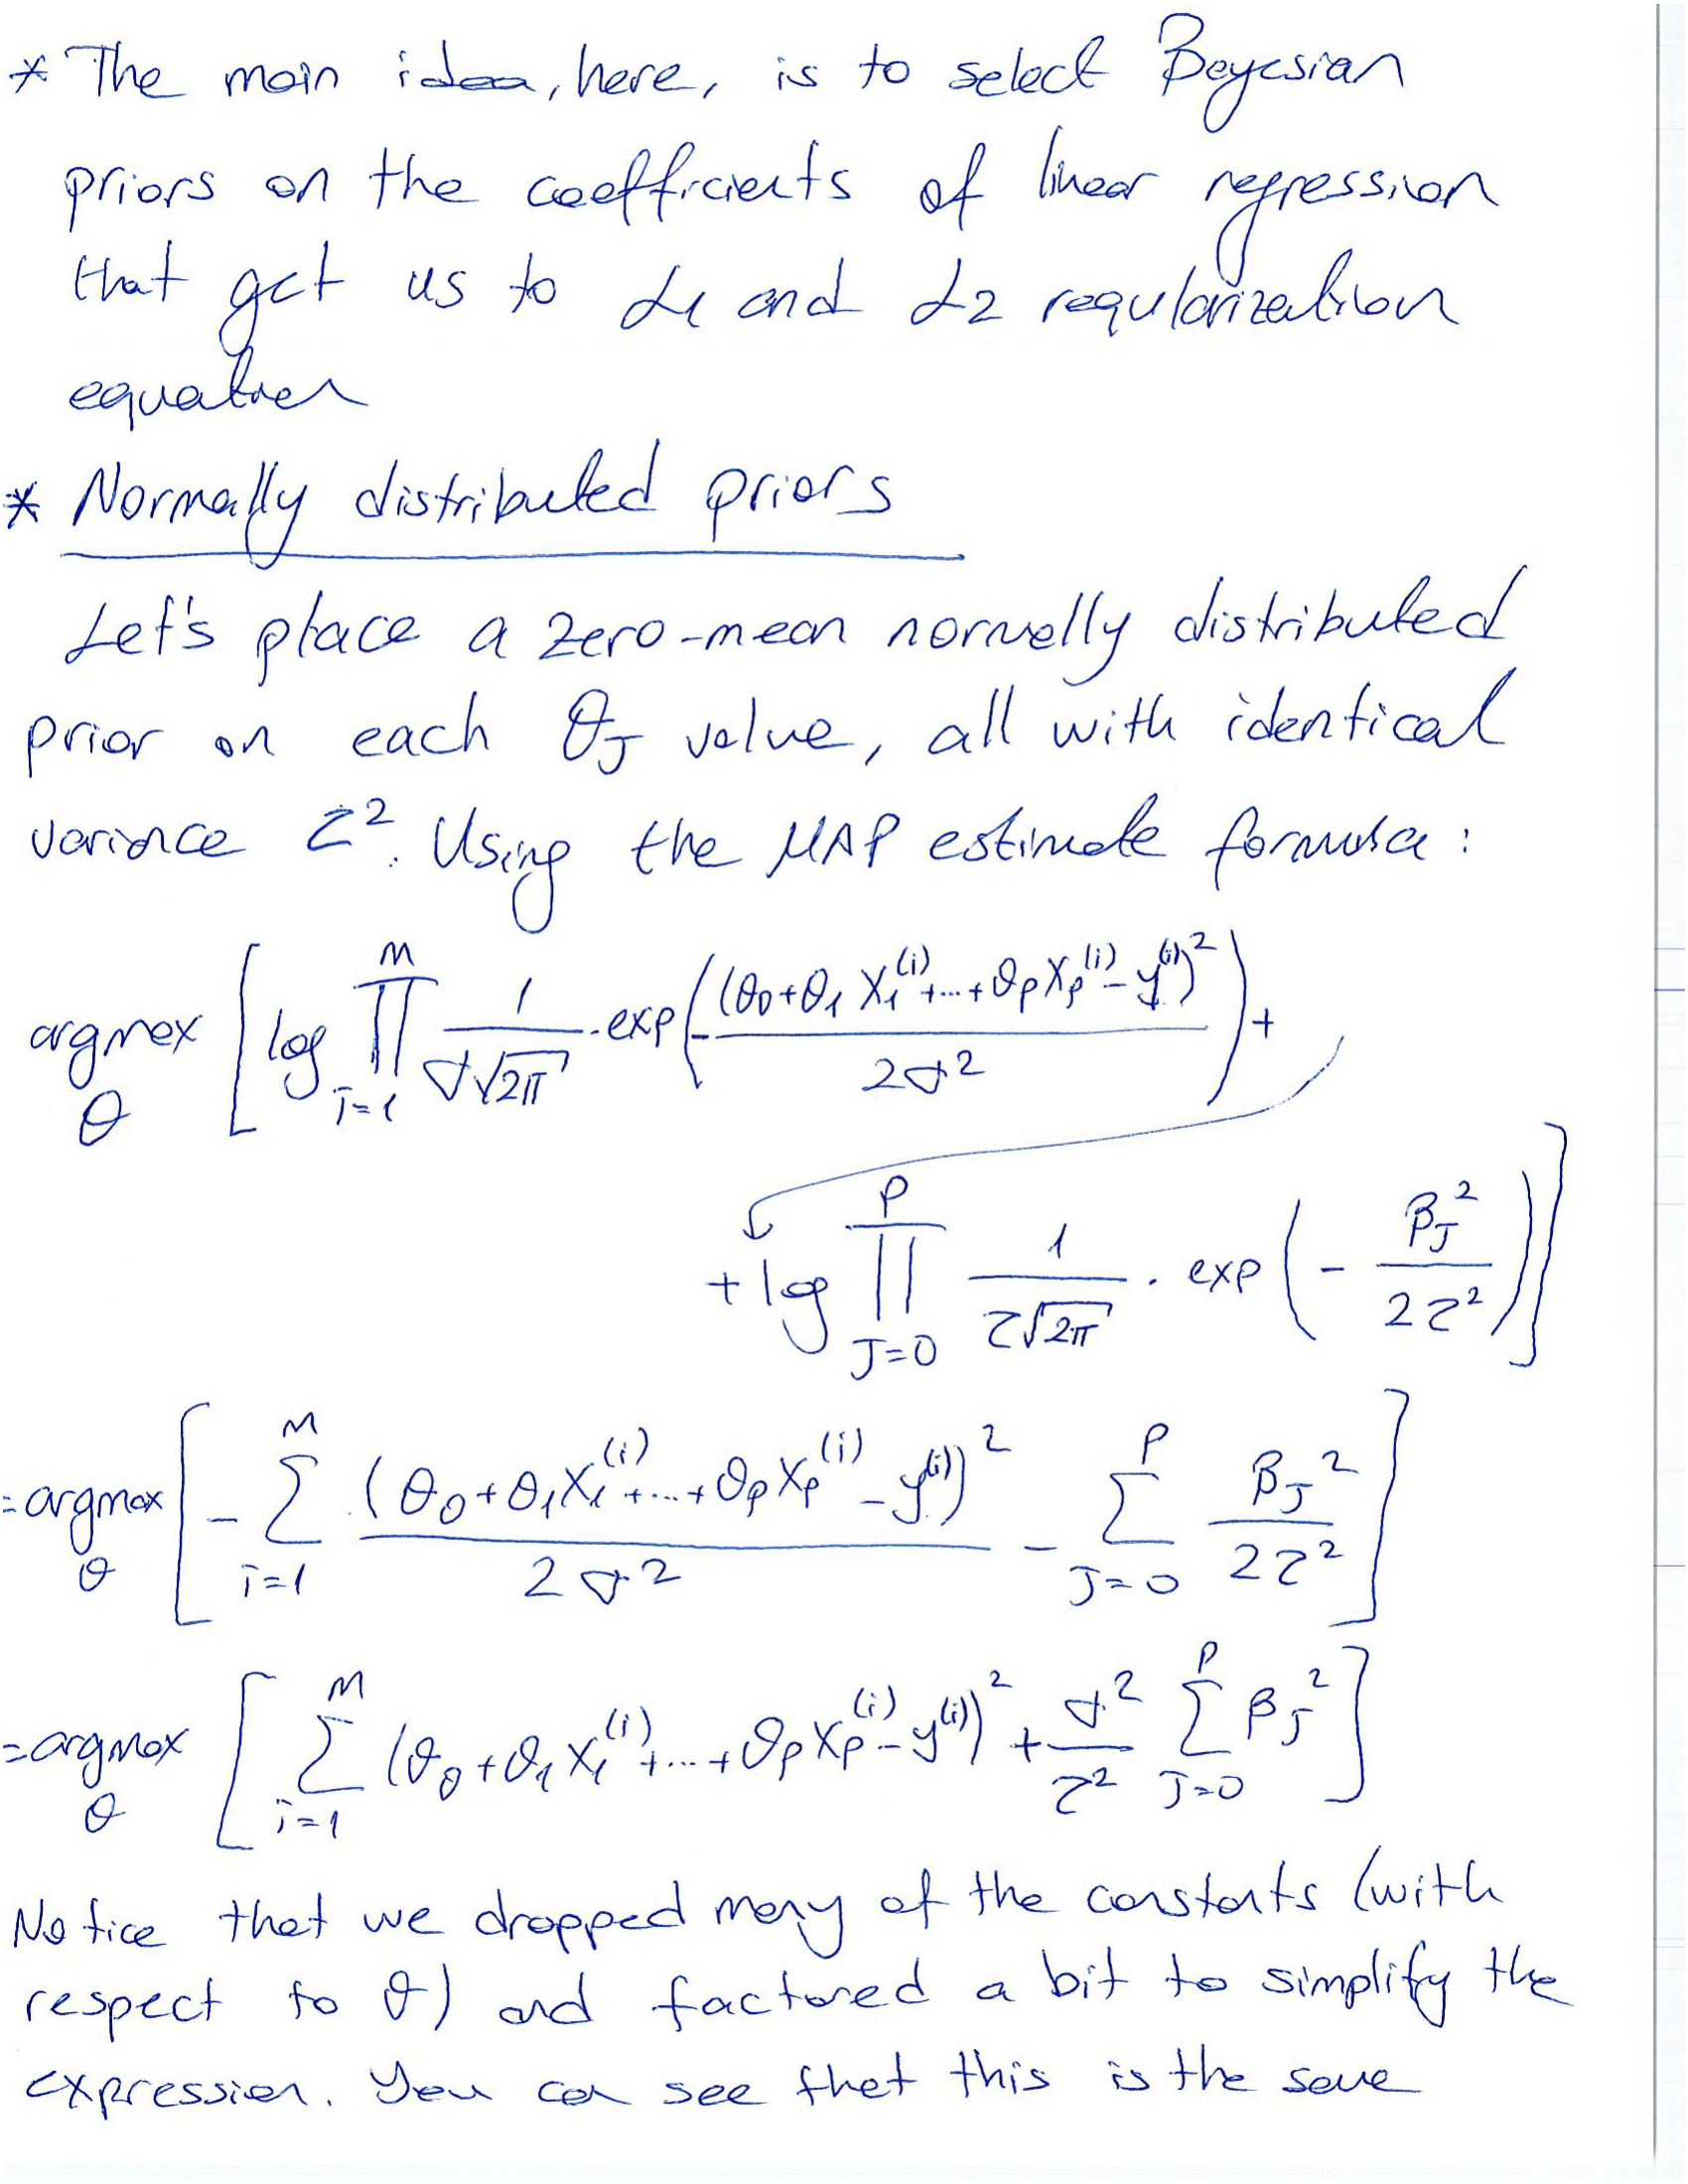 * The main idea, here, is to select Bayesian
priors on the coefficients of linear regression
that get us to L1 and L2 regularization
equation
* Normally distributed priors
Let's place a zero-mean normally distributed
prior on each θ_J value, all with identical
variance τ². Using the MAP estimate formula:
argmax_θ [ log ∏_{i=1}^{M} 1/(σ√2π) · exp( - (θ0+θ1 X1^(i)+...+θp Xp^(i) - y^(i))² / 2σ² ) +
+ log ∏_{J=0}^{P} 1/(τ√2π) · exp( - β_J² / 2τ² ) ]
= argmax_θ [ - ∑_{i=1}^{M} (θ0+θ1 X1^(i)+...+θp Xp^(i) - y^(i))² / 2σ² - ∑_{J=0}^{P} β_J² / 2τ² ]
= argmax_θ [ ∑_{i=1}^{M} (θ0+θ1 X1^(i)+...+θp Xp^(i) - y^(i))² + σ²/τ² ∑_{J=0}^{P} β_J² ]
Notice that we dropped many of the constants (with
respect to θ) and factored a bit to simplify the
expression. You can see that this is the same